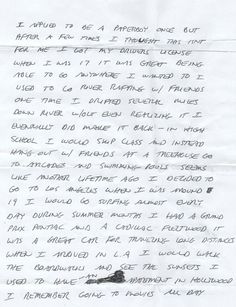 I APPLIED TO BE A PAPERBOY ONCE BUT
AFTER A FEW TIMES I THOUGHT THIS ISNT
FOR ME I GOT MY DRIVERS LICENSE
WHEN I WAS 17 IT WAS GREAT BEING
ABLE TO GO ANYWHERE I WANTED TO I
USED TO GO RIVER RAFTING W/ FRIENDS
ONE TIME I DRIFTED SEVERAL MILES
DOWN RIVER W/OUT EVEN REALIZING IT I
EVENTUALLY DID MAKE IT BACK - IN HIGH
SCHOOL I WOULD SKIP CLASS AND INSTEAD
HANG OUT W/ FRIENDS AT A TREEHOUSE GO
TO ARCADES AND SWIMMING POOLS SEEMS
LIKE ANOTHER LIFETIME AGO I DECIDED TO
GO TO LOS ANGELES WHEN I WAS AROUND
19 I WOULD GO SURFING ALMOST EVERY
DAY DURING SUMMER MONTHS I HAD A GRAND
PRIX PONTIAC AND A CADILLAC FLEETWOOD IT
WAS A GREAT CAR FOR TRAVELING LONG DISTANCES
WHEN I ARRIVED IN L.A I WOULD WALK
THE BOARDWALK AND SEE THE SUNSETS I
USED TO HAVE AN APARTMENT IN HOLLYWOOD
I REMEMBER GOING TO MOVIES ALL DAY